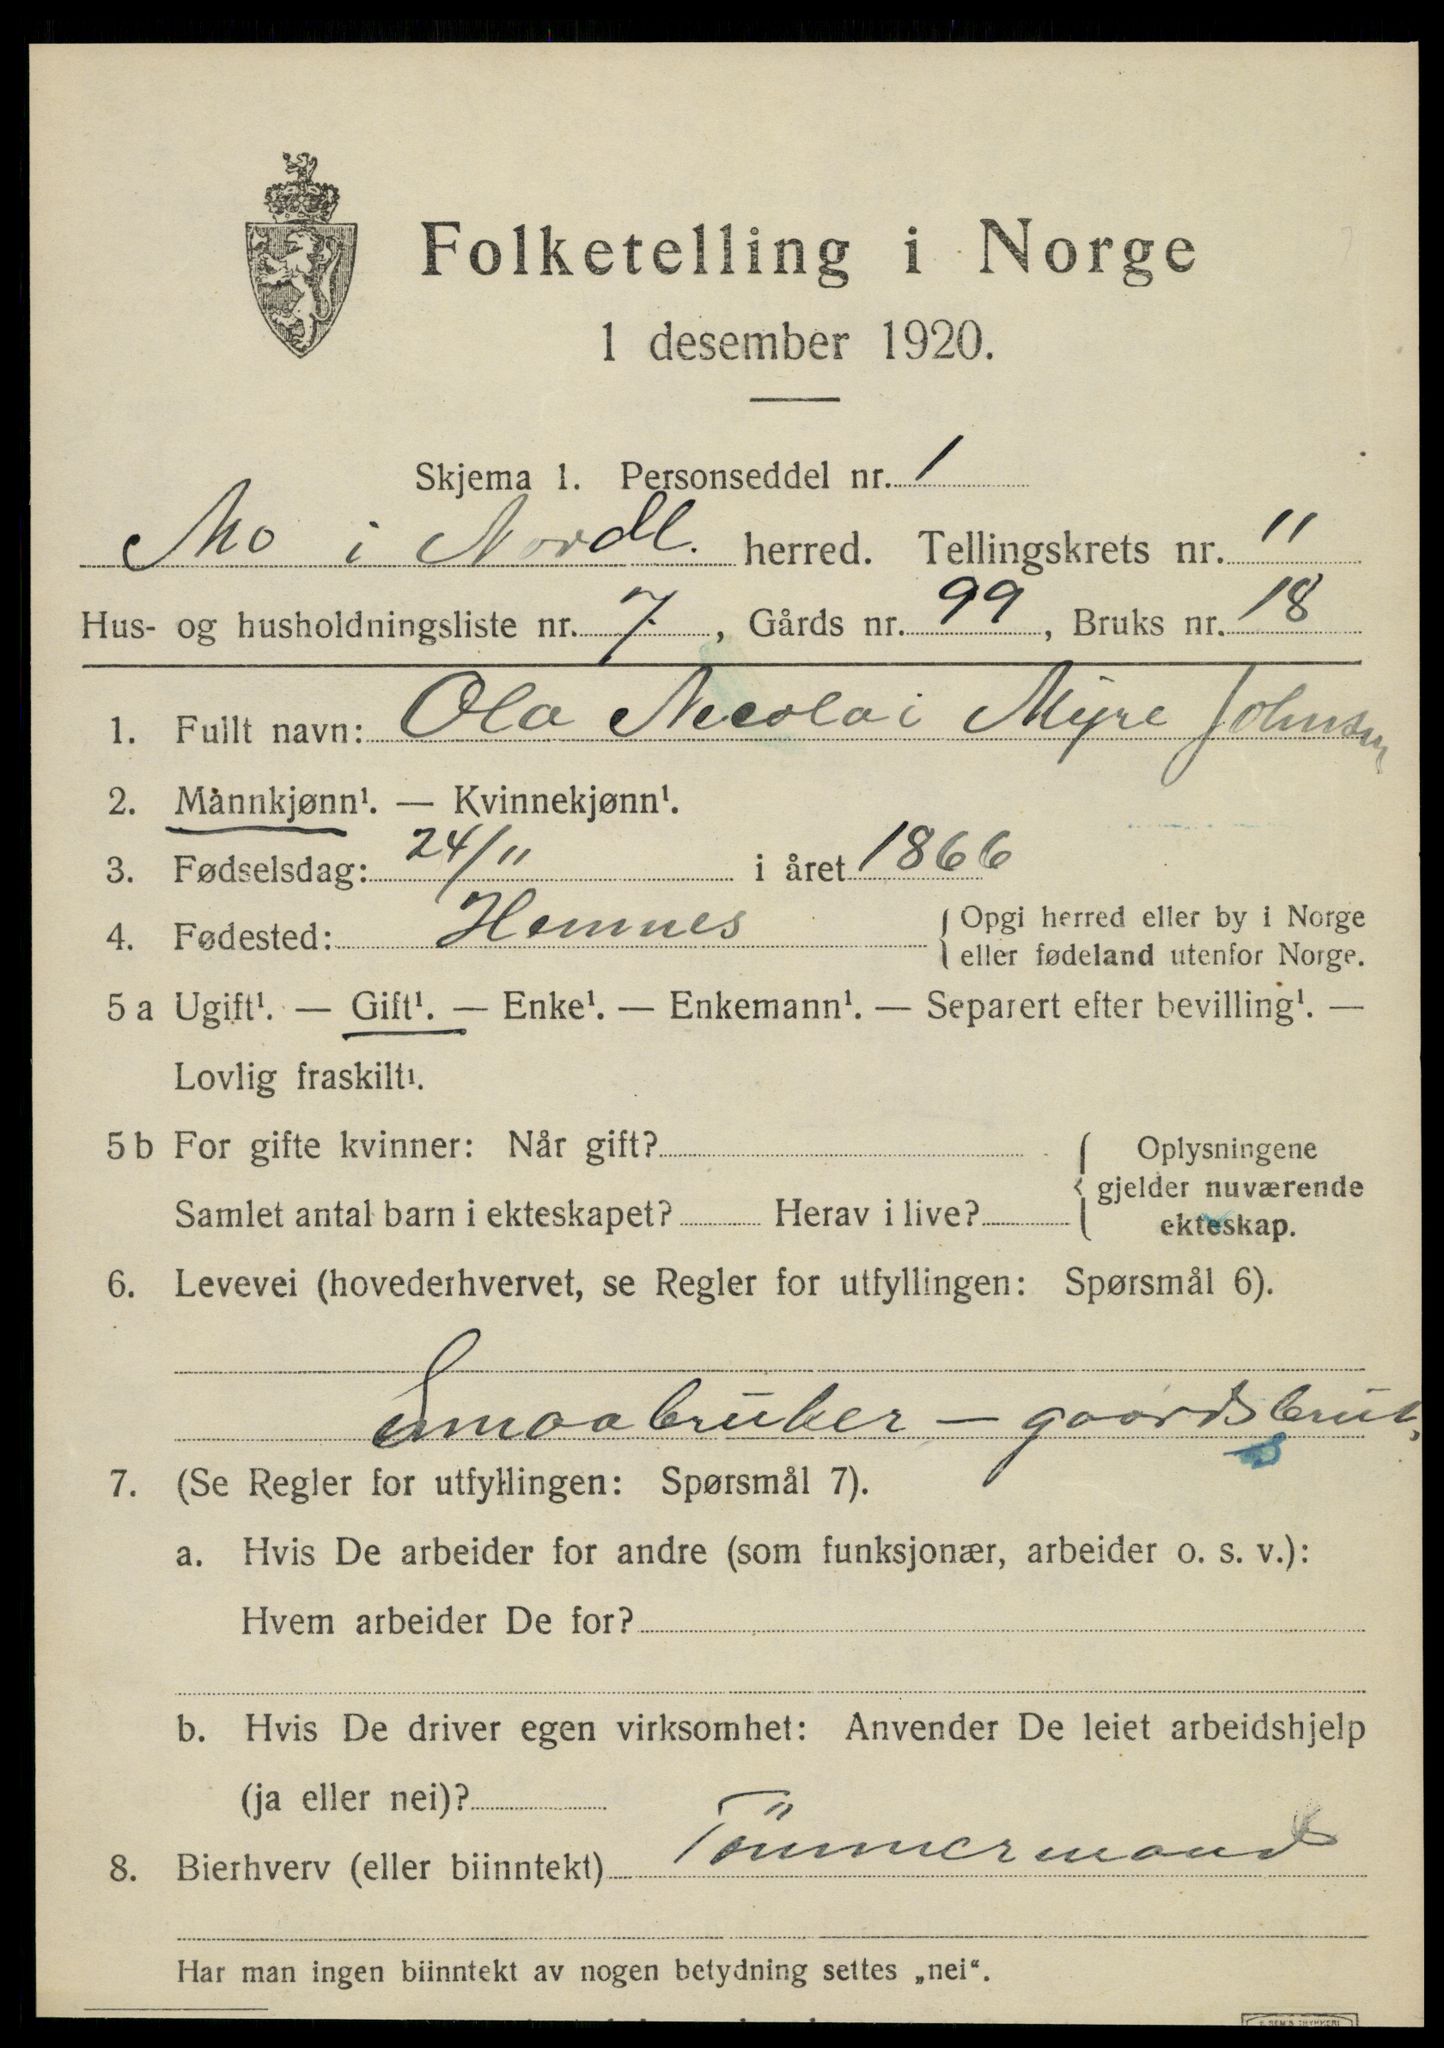 Folketelling i Norge
1 desember 1920.
Skjema 1. Personseddel nr. 1
Mo i Nordl. herred. Tellingskrets nr. 11
Hus- og husholdningsliste nr. 7, Gårds nr. 99, Bruks nr. 18
1. Fullt navn: Ola Nicolai Myre Johnsen
2. Mannkjønn¹. — Kvinnekjønn¹.
3. Fødselsdag: 24/11 i året 1866
4. Fødested: Hemnes { Opgi herred eller by i Norge
eller fødeland utenfor Norge.
5 a Ugift¹. — Gift¹. — Enke¹. — Enkemann¹. — Separert efter bevilling¹. —
Lovlig fraskilt¹.
5 b For gifte kvinner: Når gift? { Oplysningene
gjelder nuværende
Samlet antal barn i ekteskapet? Herav i live? ekteskap.
6. Levevei (hovederhvervet, se Regler for utfyllingen: Spørsmål 6).
Smaabruker – gaardsbruk,
7. (Se Regler for utfyllingen: Spørsmål 7).
a. Hvis De arbeider for andre (som funksjonær, arbeider o. s. v.):
Hvem arbeider De for?
b. Hvis De driver egen virksomhet: Anvender De leiet arbeidshjelp
(ja eller nei)?
8. Bierhverv (eller biinntekt) Tömmermand
Har man ingen biinntekt av nogen betydning settes „nei“.